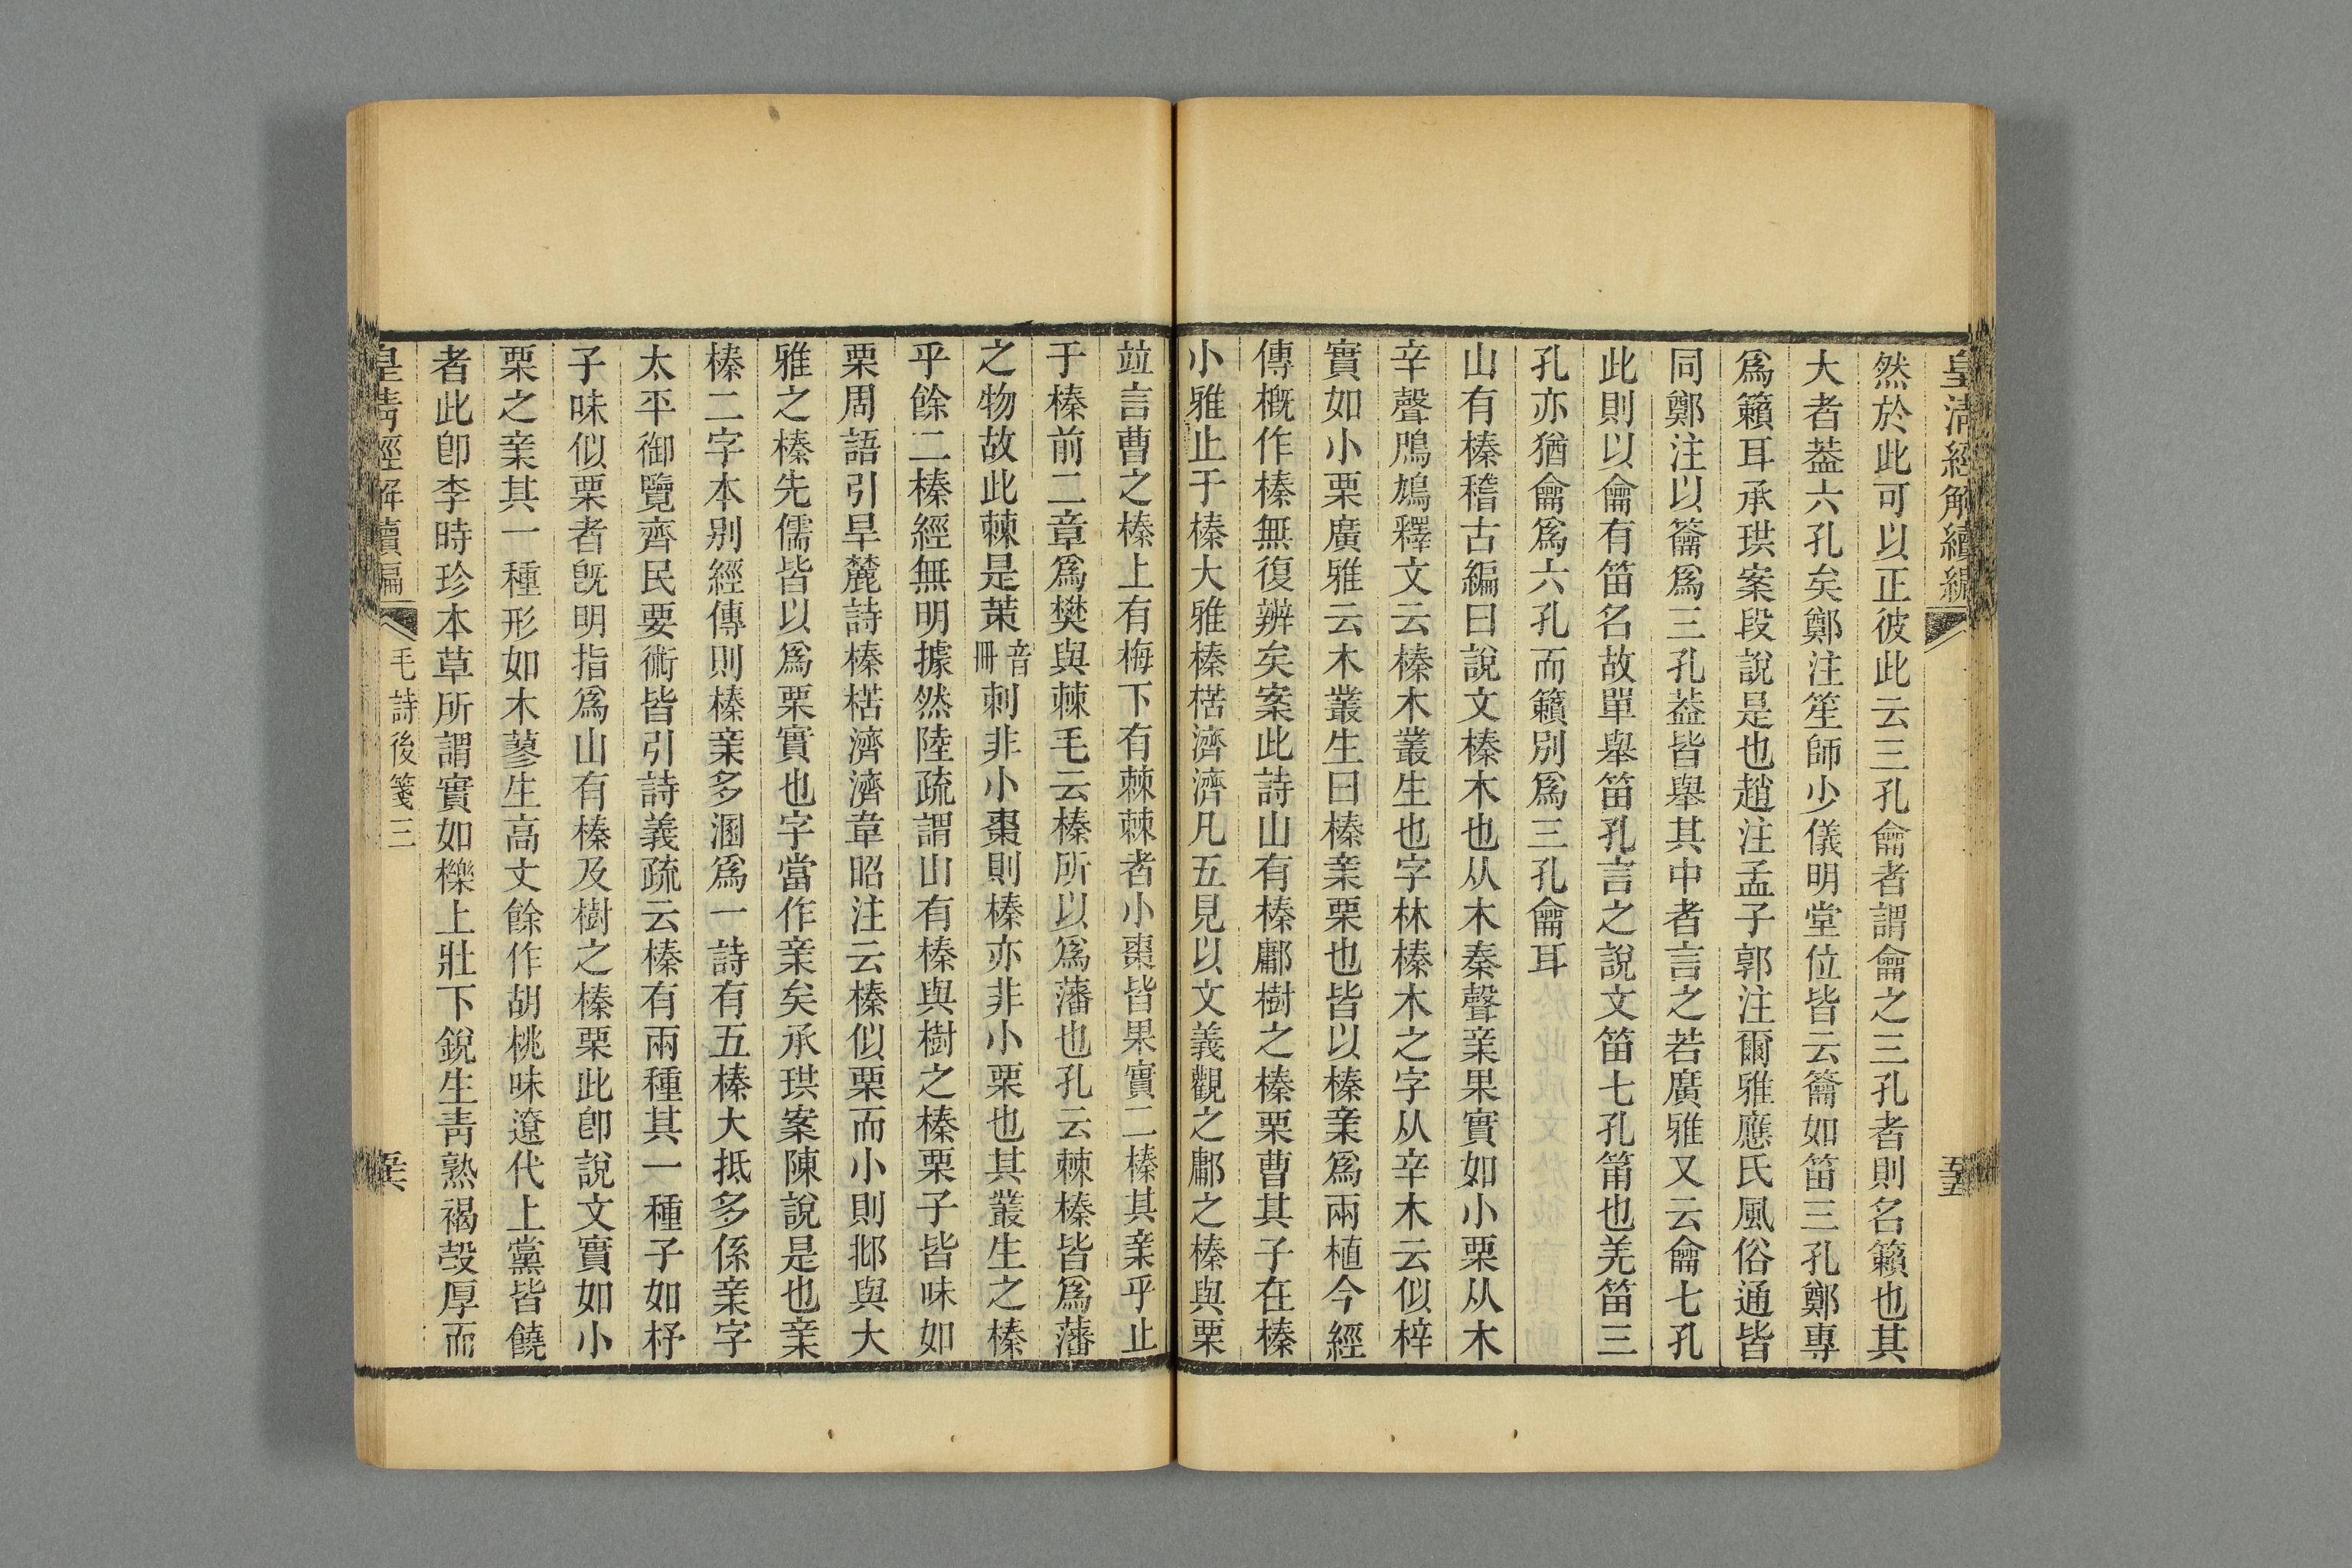 皇清經解續編
然於此可以正彼此云三孔龠者謂龠之三孔者則名籟也其
大者葢六孔矣鄭注笙師少儀明堂位皆云籥如笛三孔鄭專
爲籟耳承珙案段說是也趙注孟子郭注爾雅應氏風俗通皆
同鄭注以籥爲三孔葢皆舉其中者言之若廣雅又云龠七孔
此則以龠有笛名故單舉笛孔言之說文笛七孔筩也羌笛三
孔亦猶龠爲六孔而籟別爲三孔龠耳
山有榛稽古編曰說文榛木也从木秦聲亲果實如小栗从木
辛聲鳲鳩釋文云榛木叢生也字林榛木之字从辛木云似梓
實如小栗廣雅云木叢生曰榛亲栗也皆以榛亲爲兩植今經
傳概作榛無復辨矣案此詩山有榛鄘樹之榛栗曹其子在榛
小雅止于榛大雅榛楛濟濟凡五見以文義觀之鄘之榛與栗
竝言曹之榛上有梅下有棘棘者小棗皆果實二榛其亲乎止
于榛前二章爲樊與棘毛云榛所以爲藩也孔云棘榛皆爲藩
之物故此棘是茦音冊刺非小棗則榛亦非小栗也其叢生之榛
乎餘二榛經無明據然陸疏謂山有榛與樹之榛栗子皆味如
栗周語引旱麓詩榛楛濟濟韋昭注云榛似栗而小則邶與大
雅之榛先儒皆以爲栗實也字當作亲矣承珙案陳說是也亲
榛二字本别經傳則榛亲多溷爲一詩有五榛大抵多係亲字
太平御覽齊民要術皆引詩義疏云榛有兩種其一種子如杼
子味似栗者旣明指爲山有榛及樹之榛栗此卽說文實如小
栗之亲其一種形如木蓼生高丈餘作胡桃味遼代上黨皆饒
者此卽李時珍本草所謂實如櫟上壯下銳生靑熟褐殼厚而
皇清經解續編
毛詩後箋三